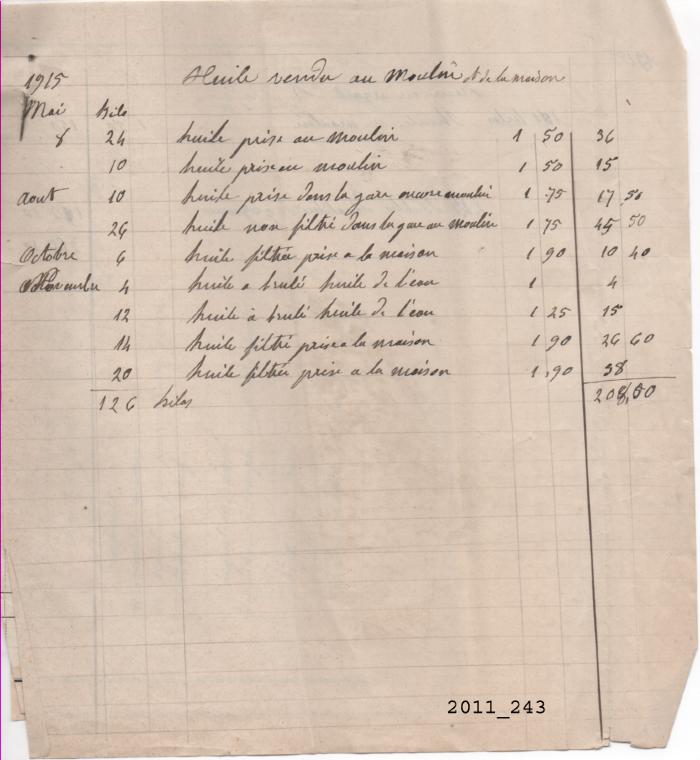 1915 Huile vendu au Moulin et de la maison
Mai kilo
8 24 huile prise au moulin 1 50 36
10 huile prise au moulin 1 50 15
aout 10 huile prise dans la gare au moulin 1 75 17 50
26 huile non filtré dans la gare au moulin 1 75 45 50
Octobre 6 huile filtrée prise a la maison 1 90 10 40
Novembre 4 huile a brulé huile de l'eau 1 4
12 huile à brulé huile de l'eau 1 25 15
14 huile filtré prise a la maison 1 90 26 60
20 huile filtrée prise a la maison 1,90 38
126 kilos 208,50
2011_243